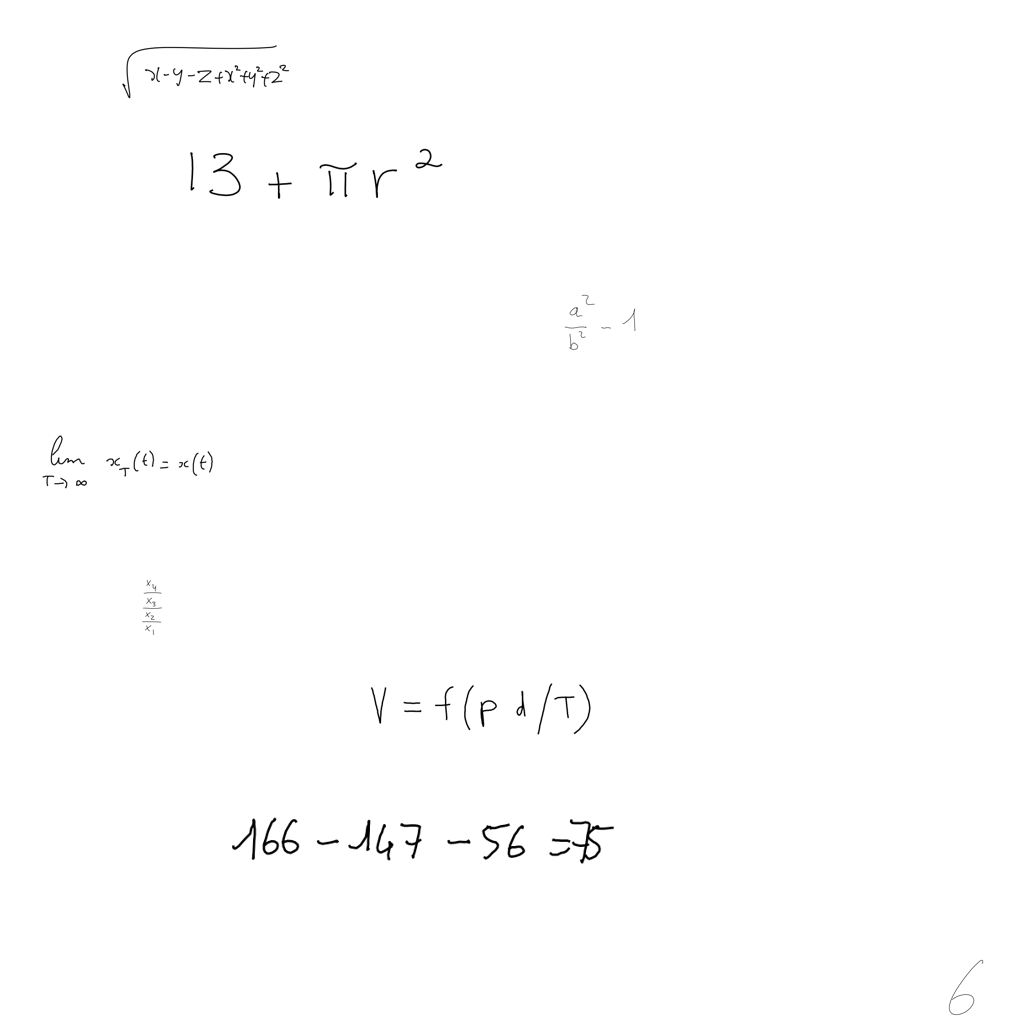 \sqrt{x-y-z+x^2+y^2+z^2}
13 + \pi r^2
\frac{a^2}{b^2} - 1
\lim_{T \to \infty} x_T(t) = x(t)
\frac{\frac{x_4}{x_3}}{\frac{x_2}{x_1}}
V = f(p d/T)
166 - 147 - 56 = 75
6